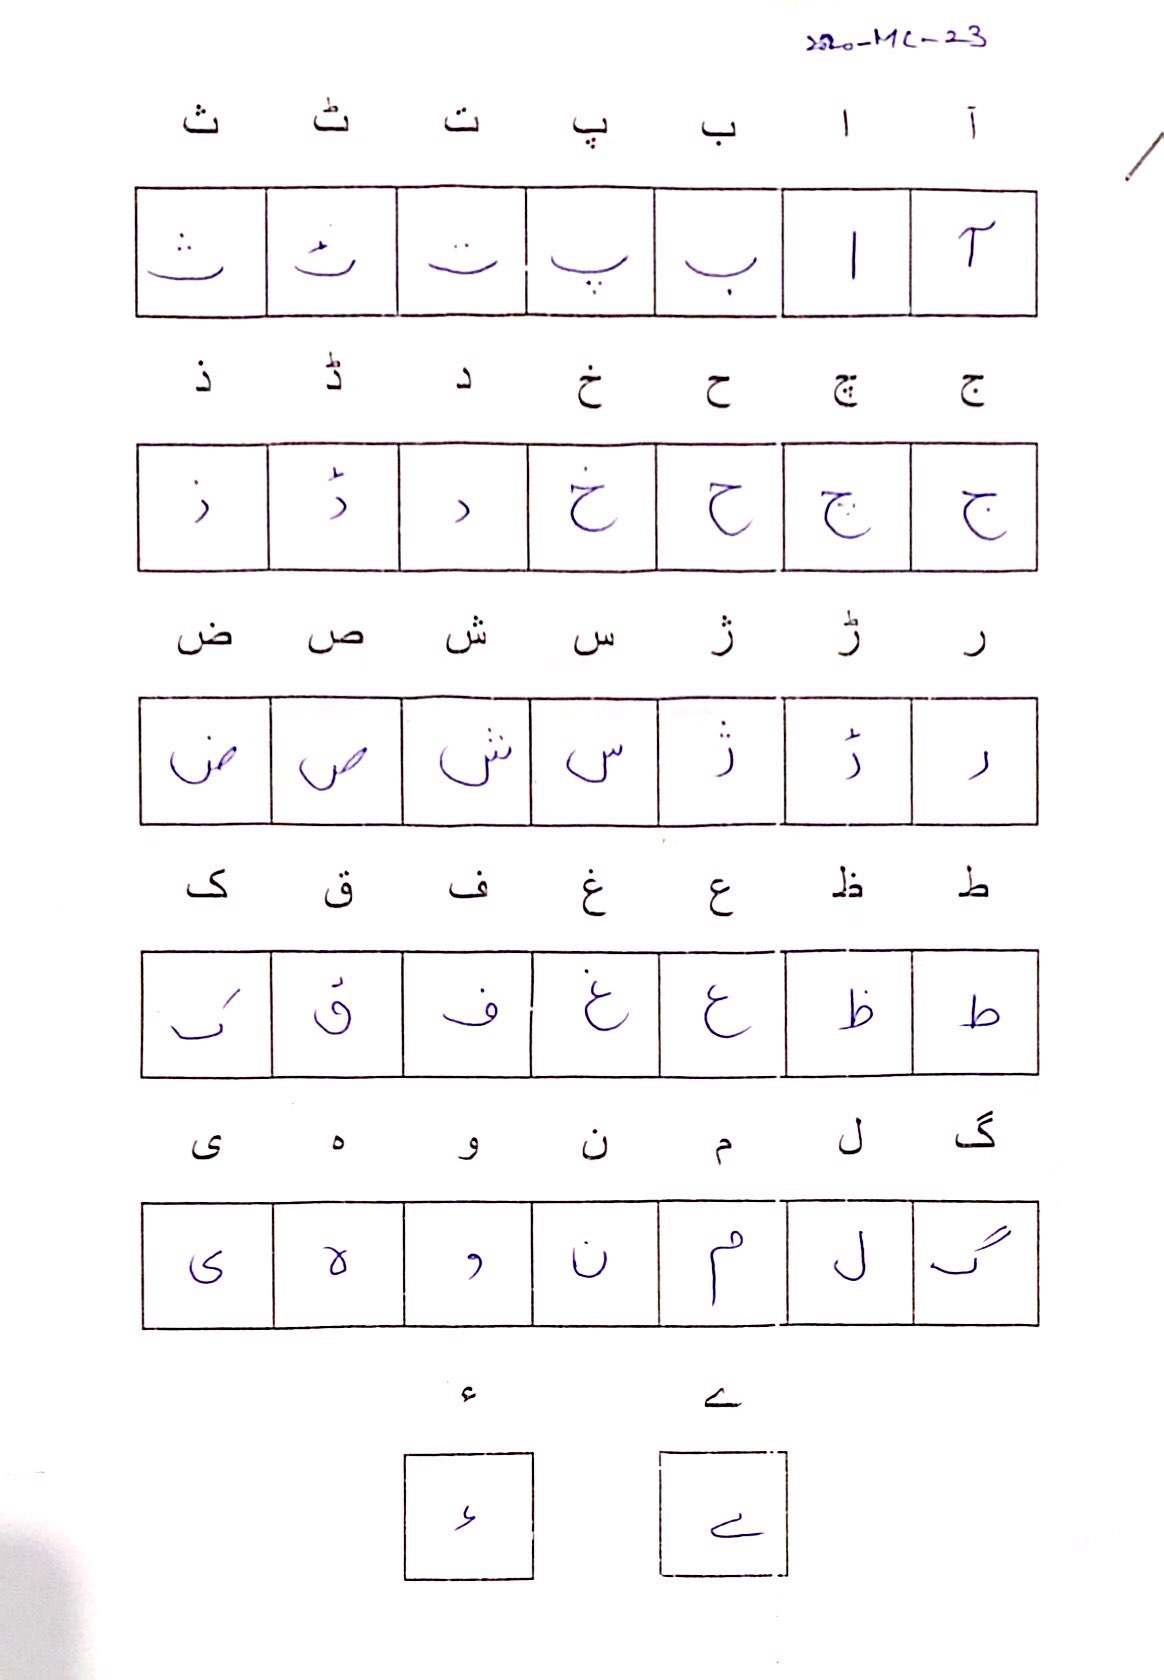 2020-MC-23
آ ا ب پ ت ٹ ث
آ ا ب پ ت ٹ ث
ج چ ح خ د ڈ ذ
ج چ ح خ د ڈ ذ
ر ڑ ژ س ش ص ض
ر ڑ ژ س ش ص ض
ط ظ ع غ ف ق ک
ط ظ ع غ ف ق ک
گ ل م ن و ہ ی
گ ل م ن و ہ ی
ے ء
ے ء